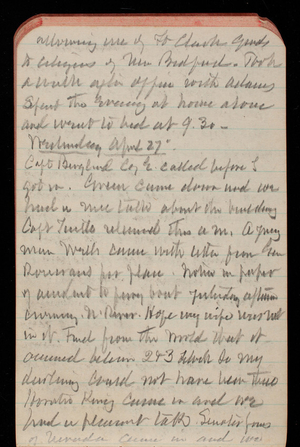 allowing use of Ft Clark Guns
to citizens of New Bedford. Took
a walk after office with Adams
Spent the Evening at home alone
and went to bed at 9.30 -
Wednesday April 27".
Capt Co, E. called before I
got in. Green came down and we
had a nice talk about the building
Capt Tuttle returned this a.m. A young
man came with letter from Gen
Rosecrans for place. Notice in paper
of accident to ferry boat yesterday afternoon
evening N. River. Hope my wife was not
in it. Find from the World that it
occurred between 2 & 3 oclock So my
darling could not have been there
Horatio King came in and we
had a pleasant talk. Senator Jones
of Nevada came in and was